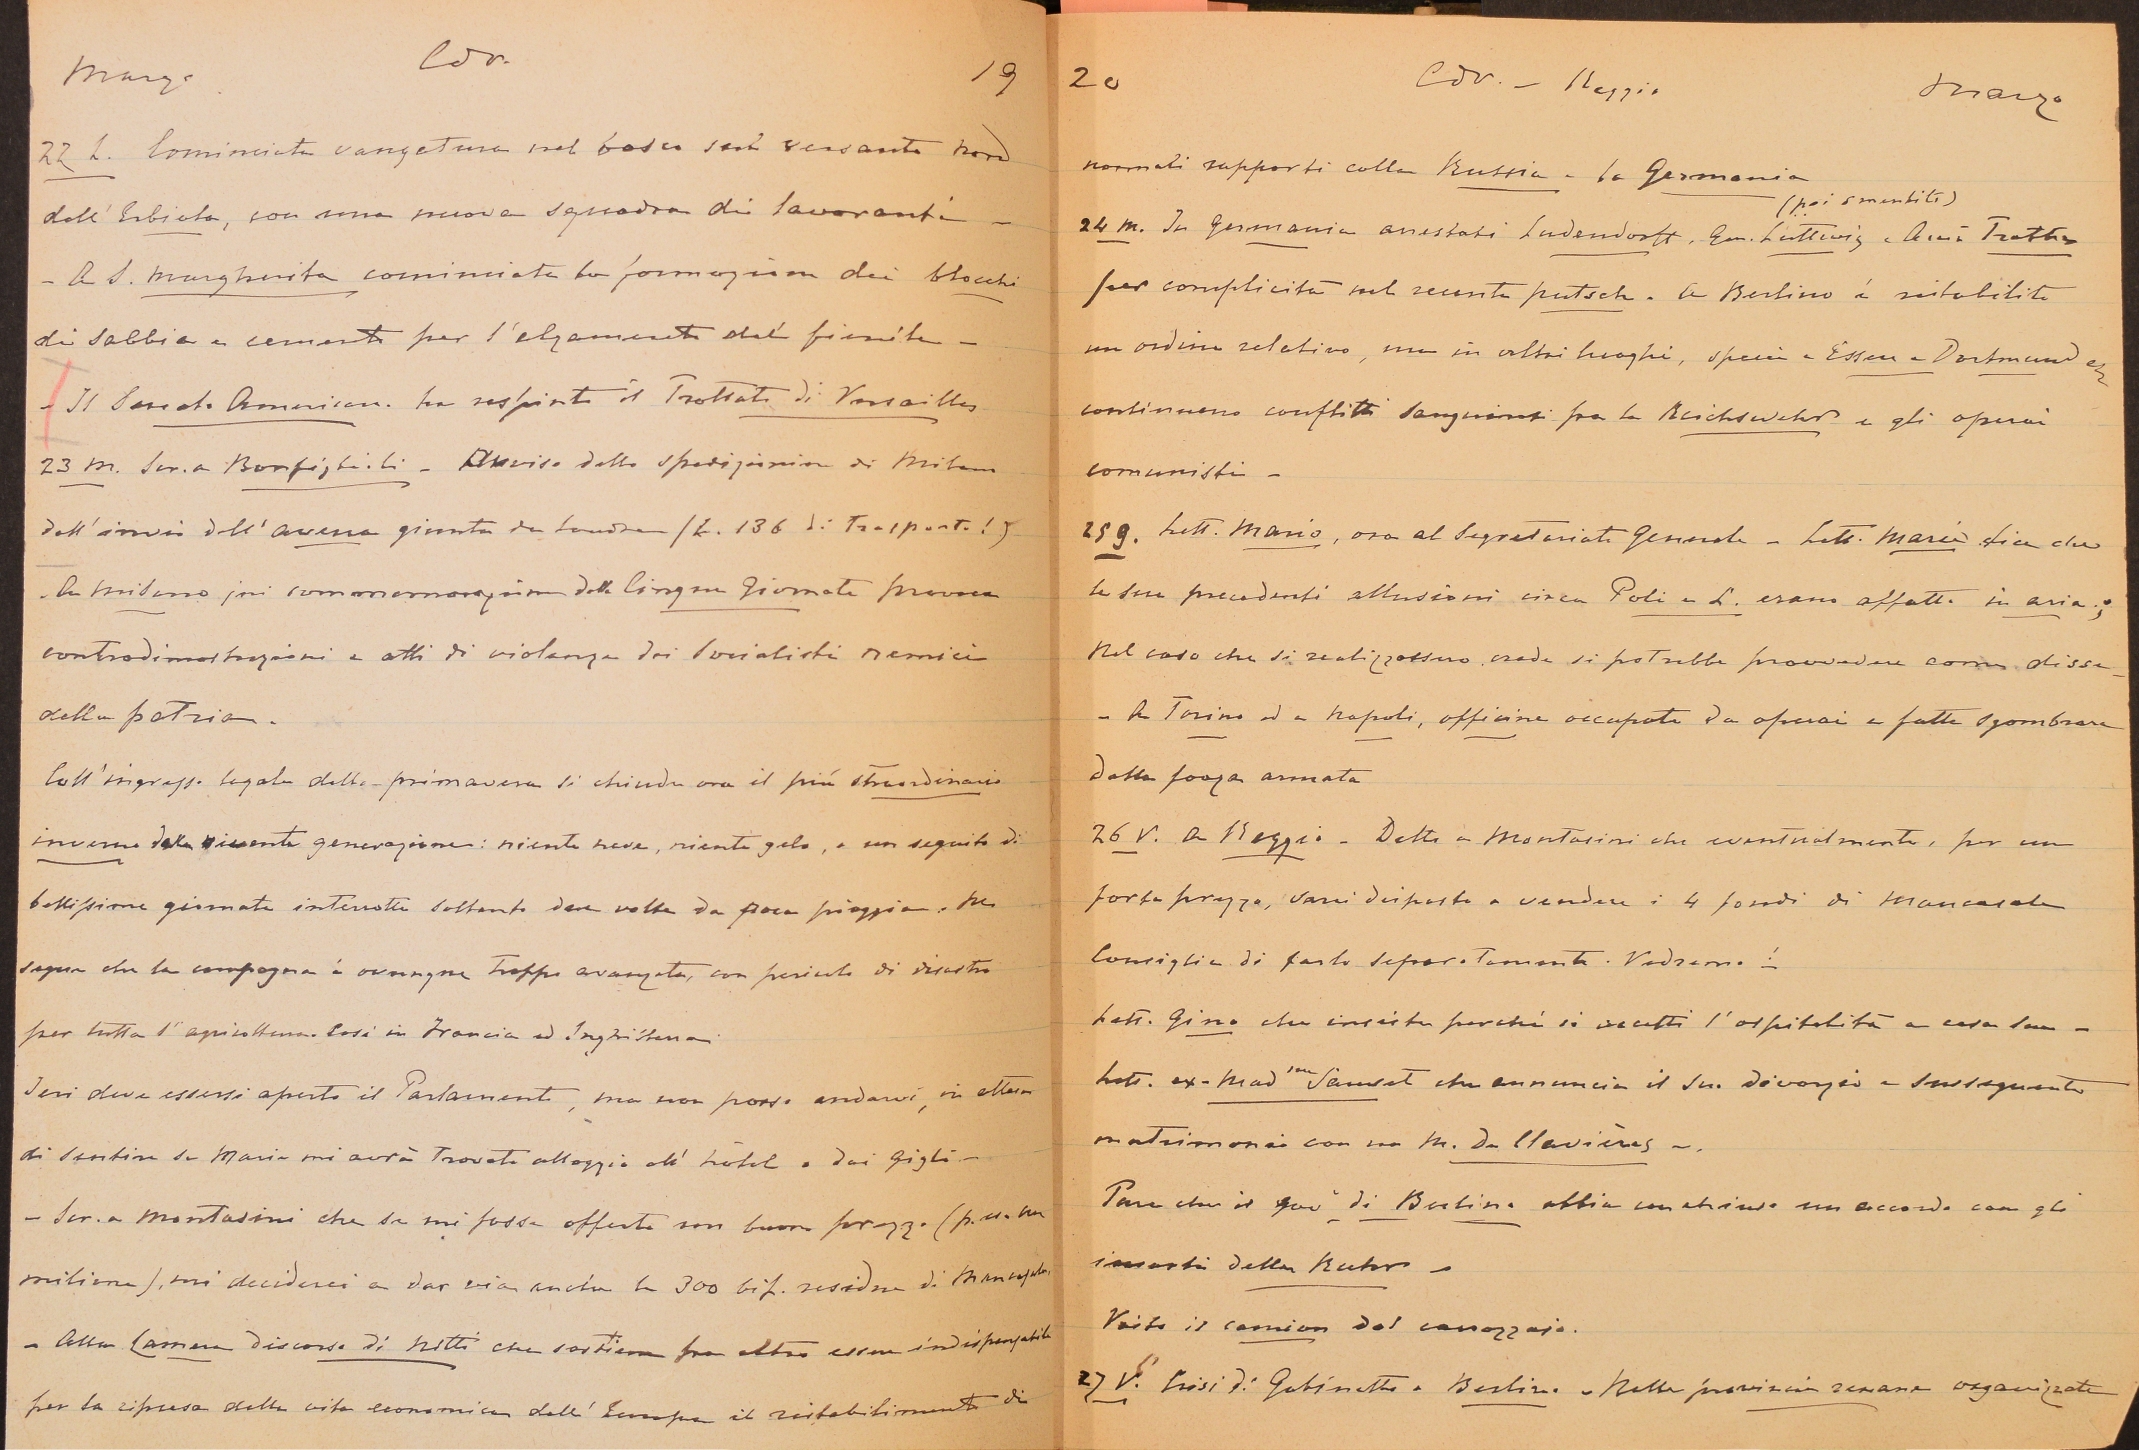 Marzo
Cdv.
19
22 L. Cominciata vangatura nel bosco sul versante nord
dell'Erbiola, con una nuova squadra di lavoranti —
- A S. Margherita cominciata la formazione dei blocchi
di sabbia e cemento per l'alzamento del fienile —
- Il Senato Americano ha respinto il Trattato di Versailles
23 M. Scr. a Bonfiglioli - Avviso dello spedizioniere di Milano
dell'invio dell'avena giunta da Londra (L. 136 di trasporto!)
- A Milano jeri commemorazione delle Cinque Giornate provoca
contradimostrazioni e atti di violenza dei Socialisti nemici
della patria.
Coll'ingresso legale della primavera si chiude ora il più straordinario
inverno della vivente generazione: niente neve, niente gelo, e un seguito di
bellissime giornate interrotte soltanto due volte da poca pioggia. Ne
segue che la campagna è ovunque troppo avanzata, con pericolo di disastro
per tutta l'agricoltura. Così in Francia ed Inghilterra.
Ieri deve essersi aperto il Parlamento, ma non posso andarvi, in attesa
di sentire se Maria mi avrà trovato alloggio all'hôtel o dai Gigli —
- Scr. a Montasini che se mi fosse offerto un buon prezzo (p. es. un
milione), mi deciderei a dar via anche le 300 bif. residue di Mancasale
- Alla Camera discorso di Nitti che sostiene fra altro essere indispensabile
per la ripresa della vita economica dell'Europa il ristabilimento di
20
Cdv. - Reggio
Marzo
normali rapporti colla Russia e la Germania
(poi smentito)
24 M. In Germania arrestati Ludendorff, Gen. Luttwig e
per complicità nel recente putsch. A Berlino è ristabilito
un ordine relativo, ma in altri luoghi, specie a Essen e Dortmund
continuano conflitti sanguinosi fra la Reichswehr e gli operai
comunisti —
25 g. Lett. Mario, ora al Segretariato Generale - Lett. Maria dice che
le sue precedenti allusioni circa Poli e L. erano affatto in aria;
Nel caso che si realizzassero crede si potrebbe provvedere come disse —
- A Torino ed a Napoli, officine occupate da operai e fatte sgombrare
dalla forza armata
26 V. A Reggio - Detto a Montasini che eventualmente, per un
forte prezzo, sarei disposto a vendere i 4 fondi di Mancasale
Consiglia di farlo separatamente. Vedremo!
Lett. Gino che insiste perché si accetti l'ospitalità a casa sua —
Lett. ex-Mad.me che annuncia il suo divorzio e susseguente
matrimonio con un M. de Clavières —.
Pare che il gov° di Berlino abbia conchiuso un accordo con gli
insorti della Ruhr —
Visto il camion dal carrozzajo.
27 Crisi di Gabinetto a Berlino - Nelle provincie renane organizzata